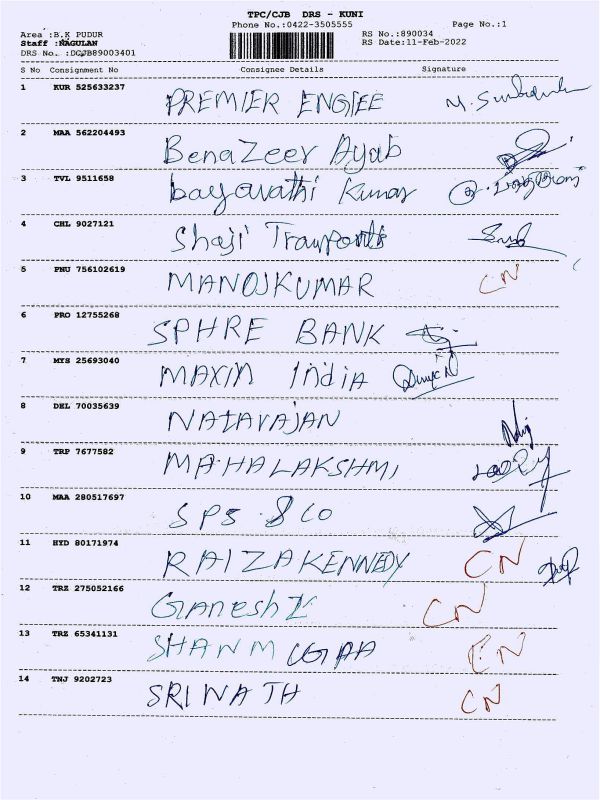 TPC/CJB DRS - KUNI
Phone No.:0422-3505555 Page No.:1
Area :B.K PUDUR RS No.:890034
Staff :NAGULAN RS Date:11-Feb-2022
DRS No. :DCJB89003401
S No Consignment No Consignee Details Signature
1 KUR 525633237 PREMIER ENGIEE
2 MAA 562204493 Benazeer Ayab
3 TVL 9511658 bayavathi Kumar
4 CHL 9027121 Shaji Transports
5 PNU 756102619 MANOJKUMAR CN
6 PRO 12755268 SPHRE BANK
7 MYS 25693040 MAXIN India
8 DEL 70035639 NATAVAJAN
9 TRP 7677582 MAHALAKSHMI
10 MAA 280517697 SPS & CO
11 HYD 80171974 RAIZAKENNEDY CN
12 TRZ 275052166 Ganesh K CN
13 TRZ 65341131 SHANMUGAA CN
14 TNJ 9202723 SRINATH CN